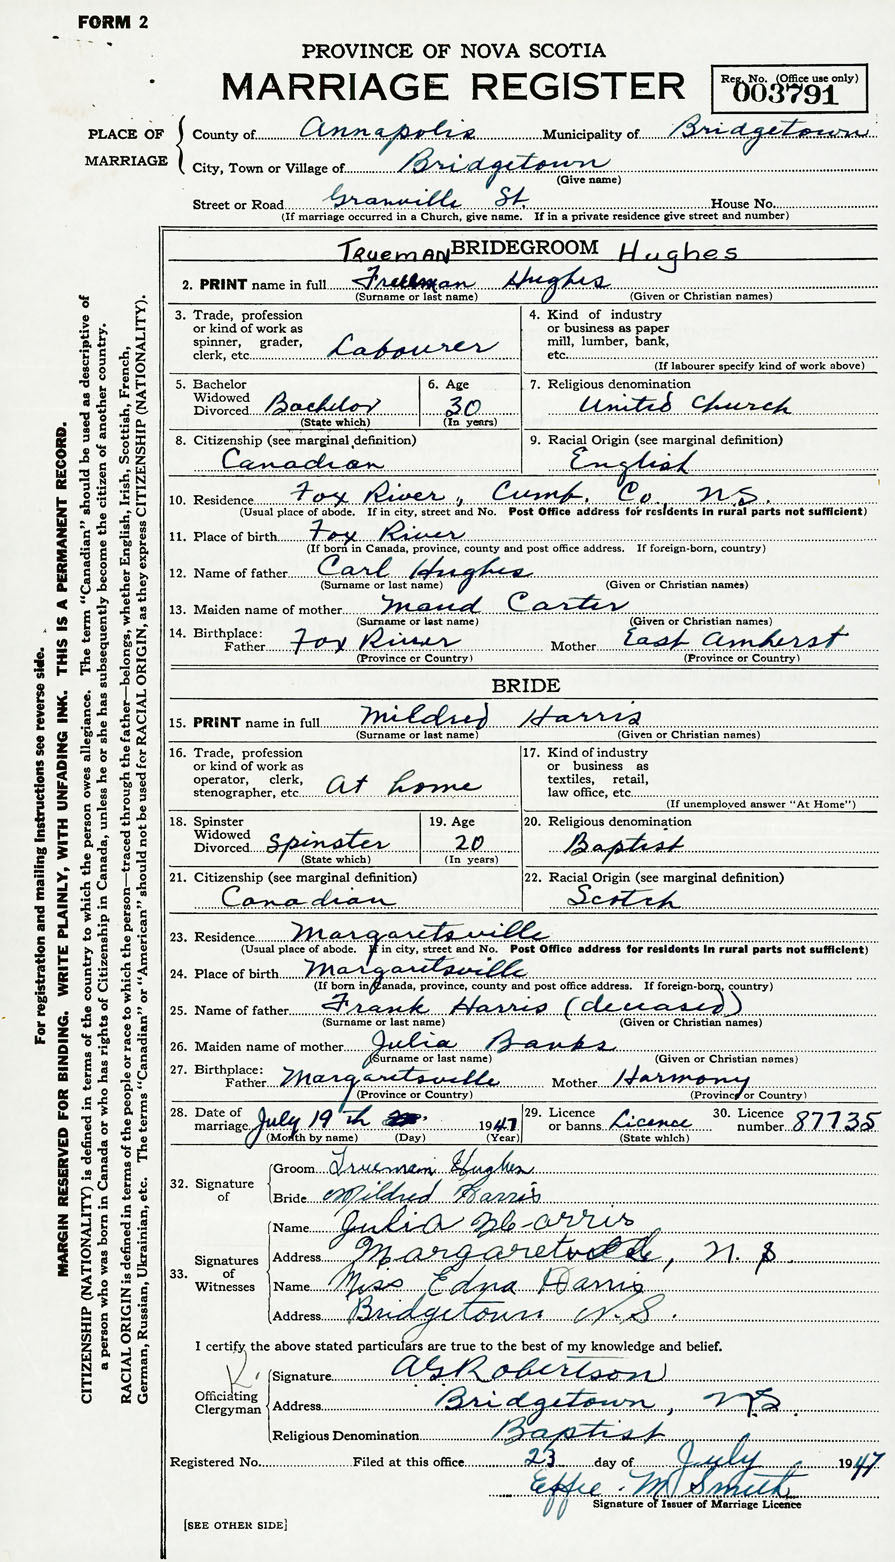 FORM 2
PROVINCE OF NOVA SCOTIA
MARRIAGE REGISTER
Reg. No. (Office use only)
003791
PLACE OF MARRIAGE
County of Annapolis Municipality of Bridgetown
City, Town or Village of Bridgetown
(Give name)
Street or Road Granville St. House No.
(If marriage occurred in a Church, give name. If in a private residence give street and number)
TRUEMAN BRIDEGROOM Hughes
2. PRINT name in full Hughes
(Surname or last name) (Given or Christian names)
3. Trade, profession or kind of work as spinner, grader, clerk, etc. Labourer
4. Kind of industry or business as paper mill, lumber, bank, etc.
(If labourer specify kind of work above)
5. Bachelor Widowed Divorced Bachelor
(State which)
6. Age 30
(In years)
7. Religious denomination
United Church
8. Citizenship (see marginal definition)
Canadian
9. Racial Origin (see marginal definition)
English
10. Residence Fox River, Cumb. Co, N.S.
(Usual place of abode. If in city, street and No. Post Office address for residents in rural parts not sufficient)
11. Place of birth Fox River
(If born in Canada, province, county and post office address. If foreign-born, country)
12. Name of father Carl Hughes
(Surname or last name) (Given or Christian names)
13. Maiden name of mother Maud Carter
(Surname or last name) (Given or Christian names)
14. Birthplace: Father Fox River Mother East Amherst
(Province or Country) (Province or Country)
BRIDE
15. PRINT name in full Mildred Harris
(Surname or last name) (Given or Christian names)
16. Trade, profession or kind of work as operator, clerk, stenographer, etc. At home
17. Kind of industry or business as textiles, retail, law office, etc.
(If unemployed answer "At Home")
18. Spinster Widowed Divorced Spinster
(State which)
19. Age 20
(In years)
20. Religious denomination
Baptist
21. Citizenship (see marginal definition)
Canadian
22. Racial Origin (see marginal definition)
Scotch
23. Residence Margaretsville
(Usual place of abode. If in city, street and No. Post Office address for residents in rural parts not sufficient)
24. Place of birth Margaritsville
(If born in Canada, province, county and post office address. If foreign-born, country)
25. Name of father Frank Harris (deceased)
(Surname or last name) (Given or Christian names)
26. Maiden name of mother Julia Banks
(Surname or last name) (Given or Christian names)
27. Birthplace: Father Margaretsville Mother Harmony
(Province or Country) (Province or Country)
28. Date of marriage July 19th 1947
(Month by name) (Day) (Year)
29. Licence or banns Licence
(State which)
30. Licence number 87735
32. Signature of
Groom Trueman Hughes
Bride Mildred Harris
33. Signatures of Witnesses
Name Julia Harris
Address Margaretville, N.S.
Name Miss Edna Harris
Address Bridgetown N.S.
I certify the above stated particulars are true to the best of my knowledge and belief.
Officiating Clergyman
R.
Signature AG Robertson
Address Bridgetown, N.S.
Religious Denomination Baptist
Registered No. Filed at this office 23 day of July 1947
Effie M Smith
Signature of Issuer of Marriage Licence
[SEE OTHER SIDE]
For registration and mailing instructions see reverse side.
MARGIN RESERVED FOR BINDING. WRITE PLAINLY, WITH UNFADING INK. THIS IS A PERMANENT RECORD.
CITIZENSHIP (NATIONALITY) is defined in terms of the country to which the person owes allegiance. The term "Canadian" should be used as descriptive of
a person who was born in Canada or who has rights of Citizenship in Canada, unless he or she has subsequently become the citizen of another country.
RACIAL ORIGIN is defined in terms of the people or race to which the person—traced through the father—belongs, whether English, Irish, Scottish, French,
German, Russian, Ukrainian, etc. The terms "Canadian" or "American" should not be used for RACIAL ORIGIN, as they express CITIZENSHIP (NATIONALITY).